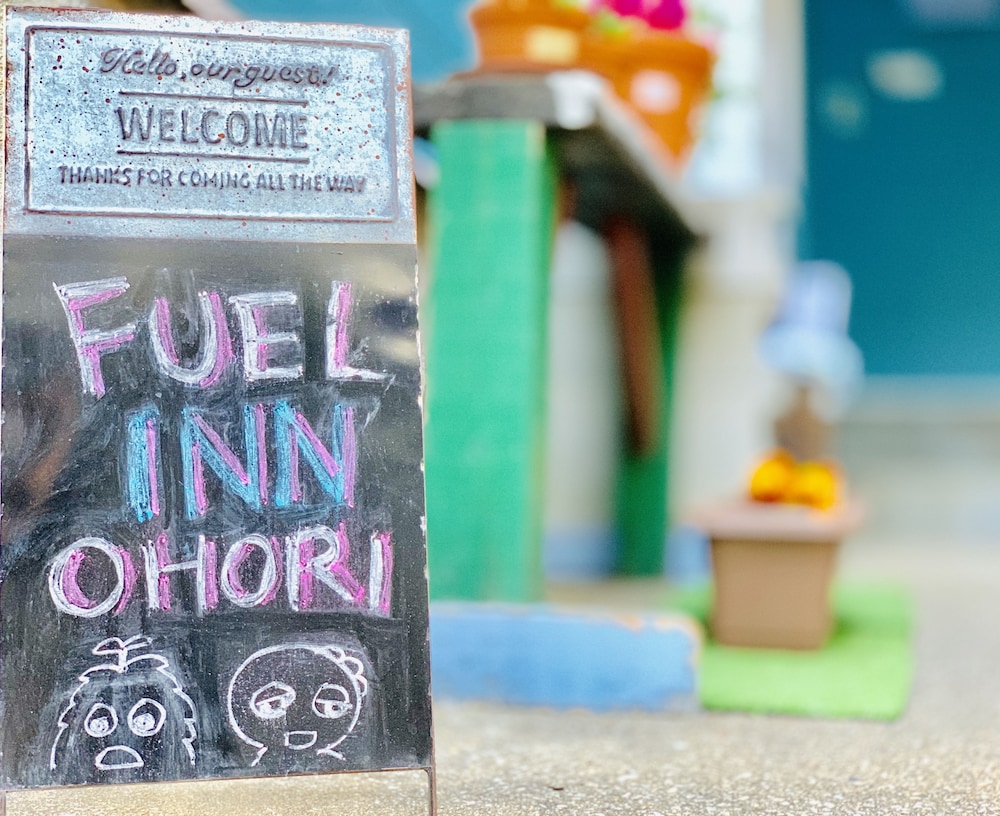 Hello, our guest!
WELCOME
THANKS FOR COMING ALL THE WAY
FUEL
INN
OHORI